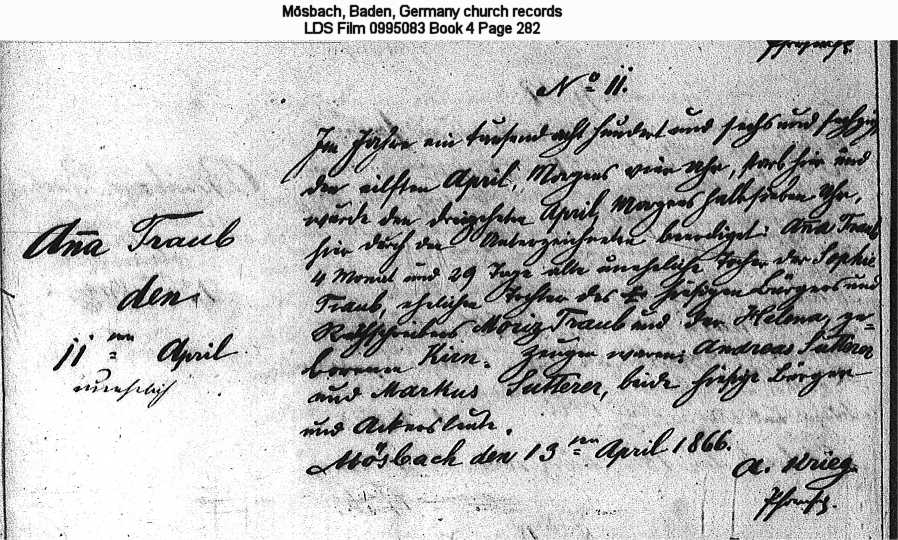 Mösbach, Baden, Germany church records
LDS Film 0995083 Book 4 Page 282
No 11.
Im Jahre ein tausend acht hundert und sechs und sechzig
den eilften April, Morgens vier Uhr, starb hier und
wurde den dreizehnten April, Morgens halb sieben Uhr,
hier durch den Unterzeichneten beerdiget: Anna Traub
4 Monat und 29 Tage alte uneheliche Tochter der Sophie
Traub, ehelichen Tochter des hiesigen Bürgers und
Rathschreibers Moriz Traub und der Helena, ge-
borenen Kirn. Zeugen waren: Andreas Sutterer
und Markus Sutterer, beide hiesige Bürger
und Ackersleute.
Mösbach den 13ten April 1866.
A. Krieg
Anna Traub
den
11ten April
unehelich